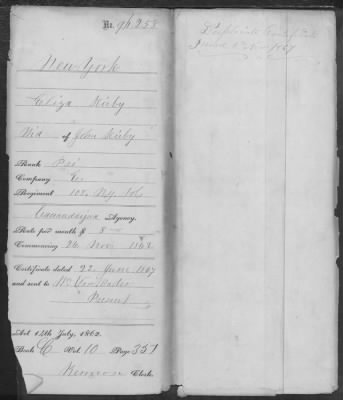 No. 96.258
New-York
Eliza Kirby
Wid of John Kirby
Rank Pri
Company
Regiment N.Y. Vols
Canandaigua Agency.
Rate per month $ 8
Commencing 26 Nov 186
Certificate dated 22 June 1867
and sent to
Present
Act 14th July, 1862.
Book C Vol. 10 Page 357
Clerk.
Duplicate Certificate
Issued 1867